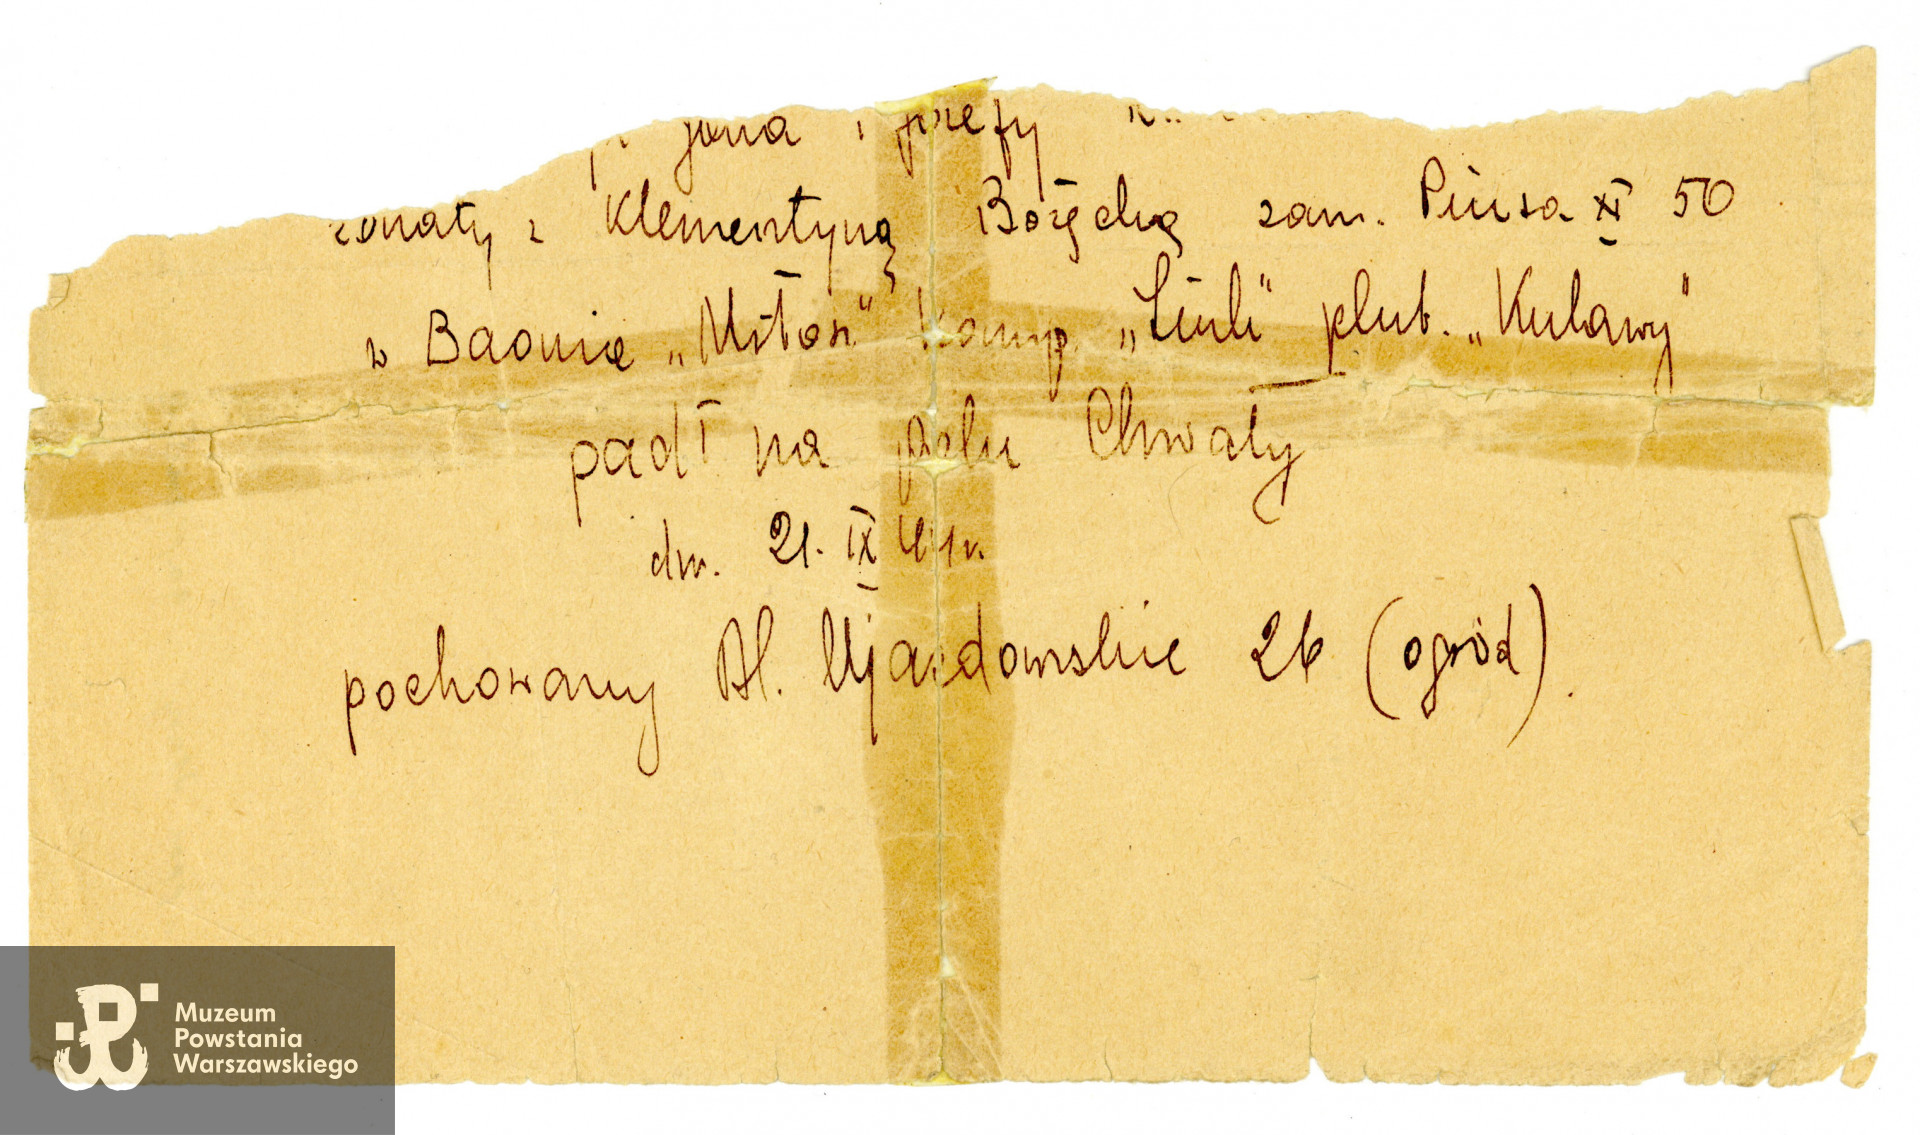 Jana i Józefy
żonaty z Klementyną Bożęcką zam. Piusa XI 50
w Baonie „Miłosz" Komp. „Siuli" plut. „Kulawy"
padł na polu Chwały
dn. 21. IX 44 r.
pochowany Al. Ujazdowskie 26 (ogród).
Muzeum
Powstania
Warszawskiego